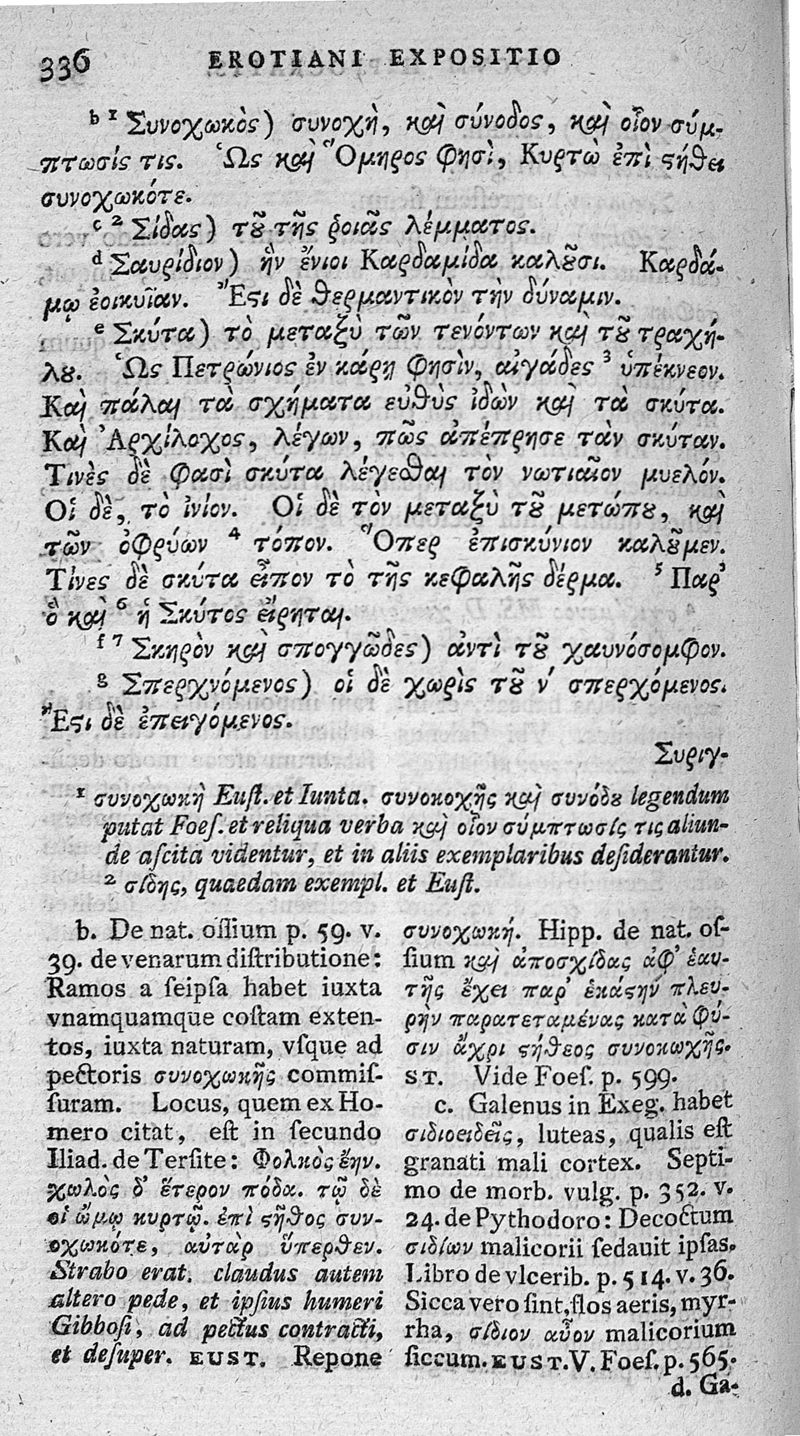 336 EROTIANI EXPOSITIO
b 1 Συνοχωκὸς) συνοχὴ, καὶ σύνοδος, καὶ οἷον σύμ-
πτωσίς τις. Ὡς καὶ Ὅμηρος φησὶ, Κυρτὼ ἐπὶ στήθει
συνοχωκότε.
c 2 Σίδας) τοῦ τῆς ῥοιᾶς λέμματος.
d Σαυρίδιον) ἣν ἔνιοι Καρδαμίδα καλοῦσι. Καρδά-
μῳ ἐοικυῖαν. Ἔστι δὲ θερμαντικὸν τὴν δύναμιν.
e Σκύτα) τὸ μεταξὺ τῶν τενόντων καὶ τοῦ τραχή-
λου. Ὡς Πετρώνιος ἐν κάρῃ φησὶν, αἰγάδες 3 ὑπέκνεον.
Καὶ πάλαι τὰ σχήματα εὐθὺς ἰδὼν καὶ τὰ σκύτα.
Καὶ Ἀρχίλοχος, λέγων, πῶς ἀπέπρησε τὰν σκύταν.
Τινὲς δὲ φασὶ σκύτα λέγεσθαι τὸν νωτιαῖον μυελόν.
Οἱ δὲ, τὸ ἰνίον. Οἱ δὲ τὸν μεταξὺ τοῦ μετώπου, καὶ
τῶν ὀφρύων 4 τόπον. Ὅπερ ἐπισκύνιον καλοῦμεν.
Τίνες δὲ σκύτα εἶπον τὸ τῆς κεφαλῆς δέρμα. 5 Παρ'
ὃ καὶ 6 ἡ Σκύτος εἴρηται.
f 7 Σκηρὸν καὶ σπογγῶδες) ἀντὶ τοῦ χαυνόσομφον.
g Σπερχνόμενος) οἱ δὲ χωρὶς τοῦ ν' σπερχόμενος.
Ἔστι δὲ ἐπειγόμενος.
Συριγ-
1 συνοχωκὴ Eust. et Iunta. συνοκοχῆς καὶ συνόδου legendum
putat Foes. et reliqua verba καὶ οἷον σύμπτωσίς τις aliun-
de ascita videntur, et in aliis exemplaribus desiderantur.
2 σίδης, quaedam exempl. et Eust.
b. De nat. ossium p. 59. v.
39. de venarum distributione:
Ramos a seipsa habet iuxta
vnamquamque costam exten-
tos, iuxta naturam, vsque ad
pectoris συνοχωκῆς commis-
suram. Locus, quem ex Ho-
mero citat, est in secundo
Iliad. de Tersite: Φολκὸς ἔην.
χωλὸς δ' ἕτερον πόδα. τῷ δὲ
οἱ ὤμῳ κυρτῷ. ἐπὶ στῆθος συν-
οχωκότε, αὐτὰρ ὕπερθεν.
Strabo erat. claudus autem
altero pede, et ipsius humeri
Gibbosi, ad pectus contracti,
et desuper. EUST. Repone
συνοχωκή. Hipp. de nat. os-
sium καὶ ἀποσχίδας ἀφ' ἑαυ-
τῆς ἔχει παρ' ἑκάστην πλευ-
ρὴν παρατεταμένας κατὰ φύ-
σιν ἄχρι στήθεος συνοκωχῆς.
ST. Vide Foes. p. 599.
c. Galenus in Exeg. habet
σιδιοειδεῖς, luteas, qualis est
granati mali cortex. Septi-
mo de morb. vulg. p. 352. v.
24. de Pythodoro: Decoctum
σιδίων malicorii sedauit ipsas.
Libro de vlcerib. p. 514. v. 36.
Sicca vero sint, flos aeris, myr-
rha, σίδιον αὖον malicorium
siccum. EUST. V. Foes. p. 565.
d. Ga-